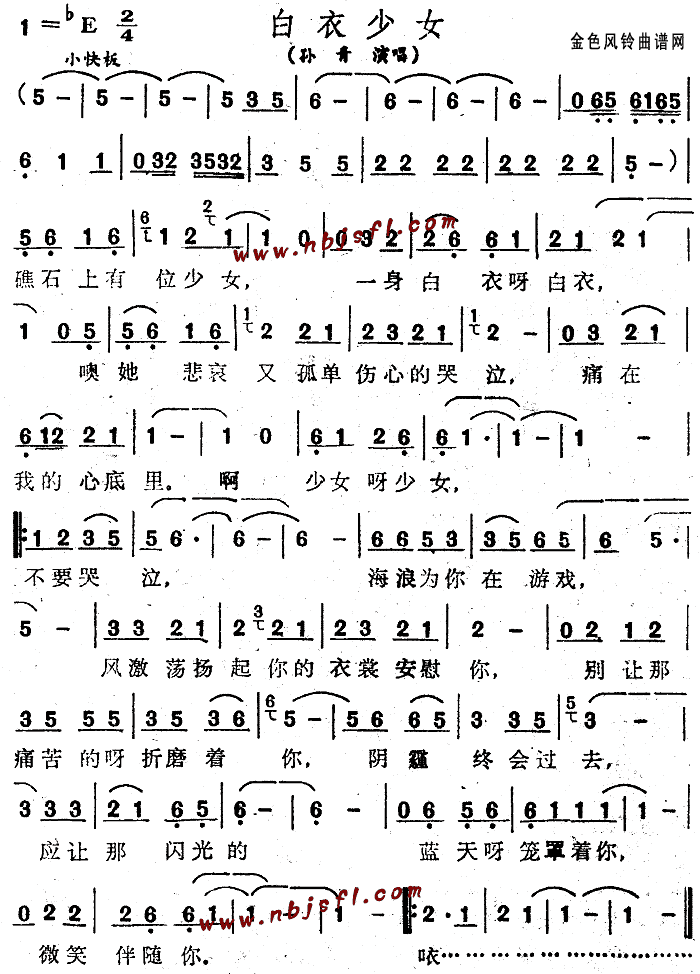 1=♭E 2/4 白衣少女 金色风铃曲谱网
小快板 (孙青 演唱)
(5-|5-|5-|5 35|6-|6-|6-|6-|065 6165|
6 1 1|032 3532|3 5 5|22 22|22 22|5-)|
56 16|1 2 1|1 0|032|26 61|21
www.nbjsfl.com
礁石上有 位少女, 一身白 衣呀白衣,
1 05|56 16|2 21|23 21|2-|03 21|
噢她 悲哀 又孤单伤心的哭 泣, 痛在
612 21|1-|1 0|61 26|61·|1-|1 -|
我的心底里。 啊 少女呀少女,
12 35|56·|6-|6-|66 53|35 65|6 5·|
不要哭 泣, 海浪为你在 游戏,
5 -|33 21|2 21|23 21|2-|02 12|
风激 荡扬起你的衣裳安慰 你, 别让那
35 55|35 36|5-|56 65|3 35|3 -|
痛苦的呀折磨着 你, 阴霾 终会过去,
3 33|21 65|6-|6-|06 56|61 11|1-|
应让那 闪光的 蓝天呀笼罩着你,
022|26 61|1-|1-|2·1|21 21|
www.nbjsfl.com
微笑 伴随你。 咴………………